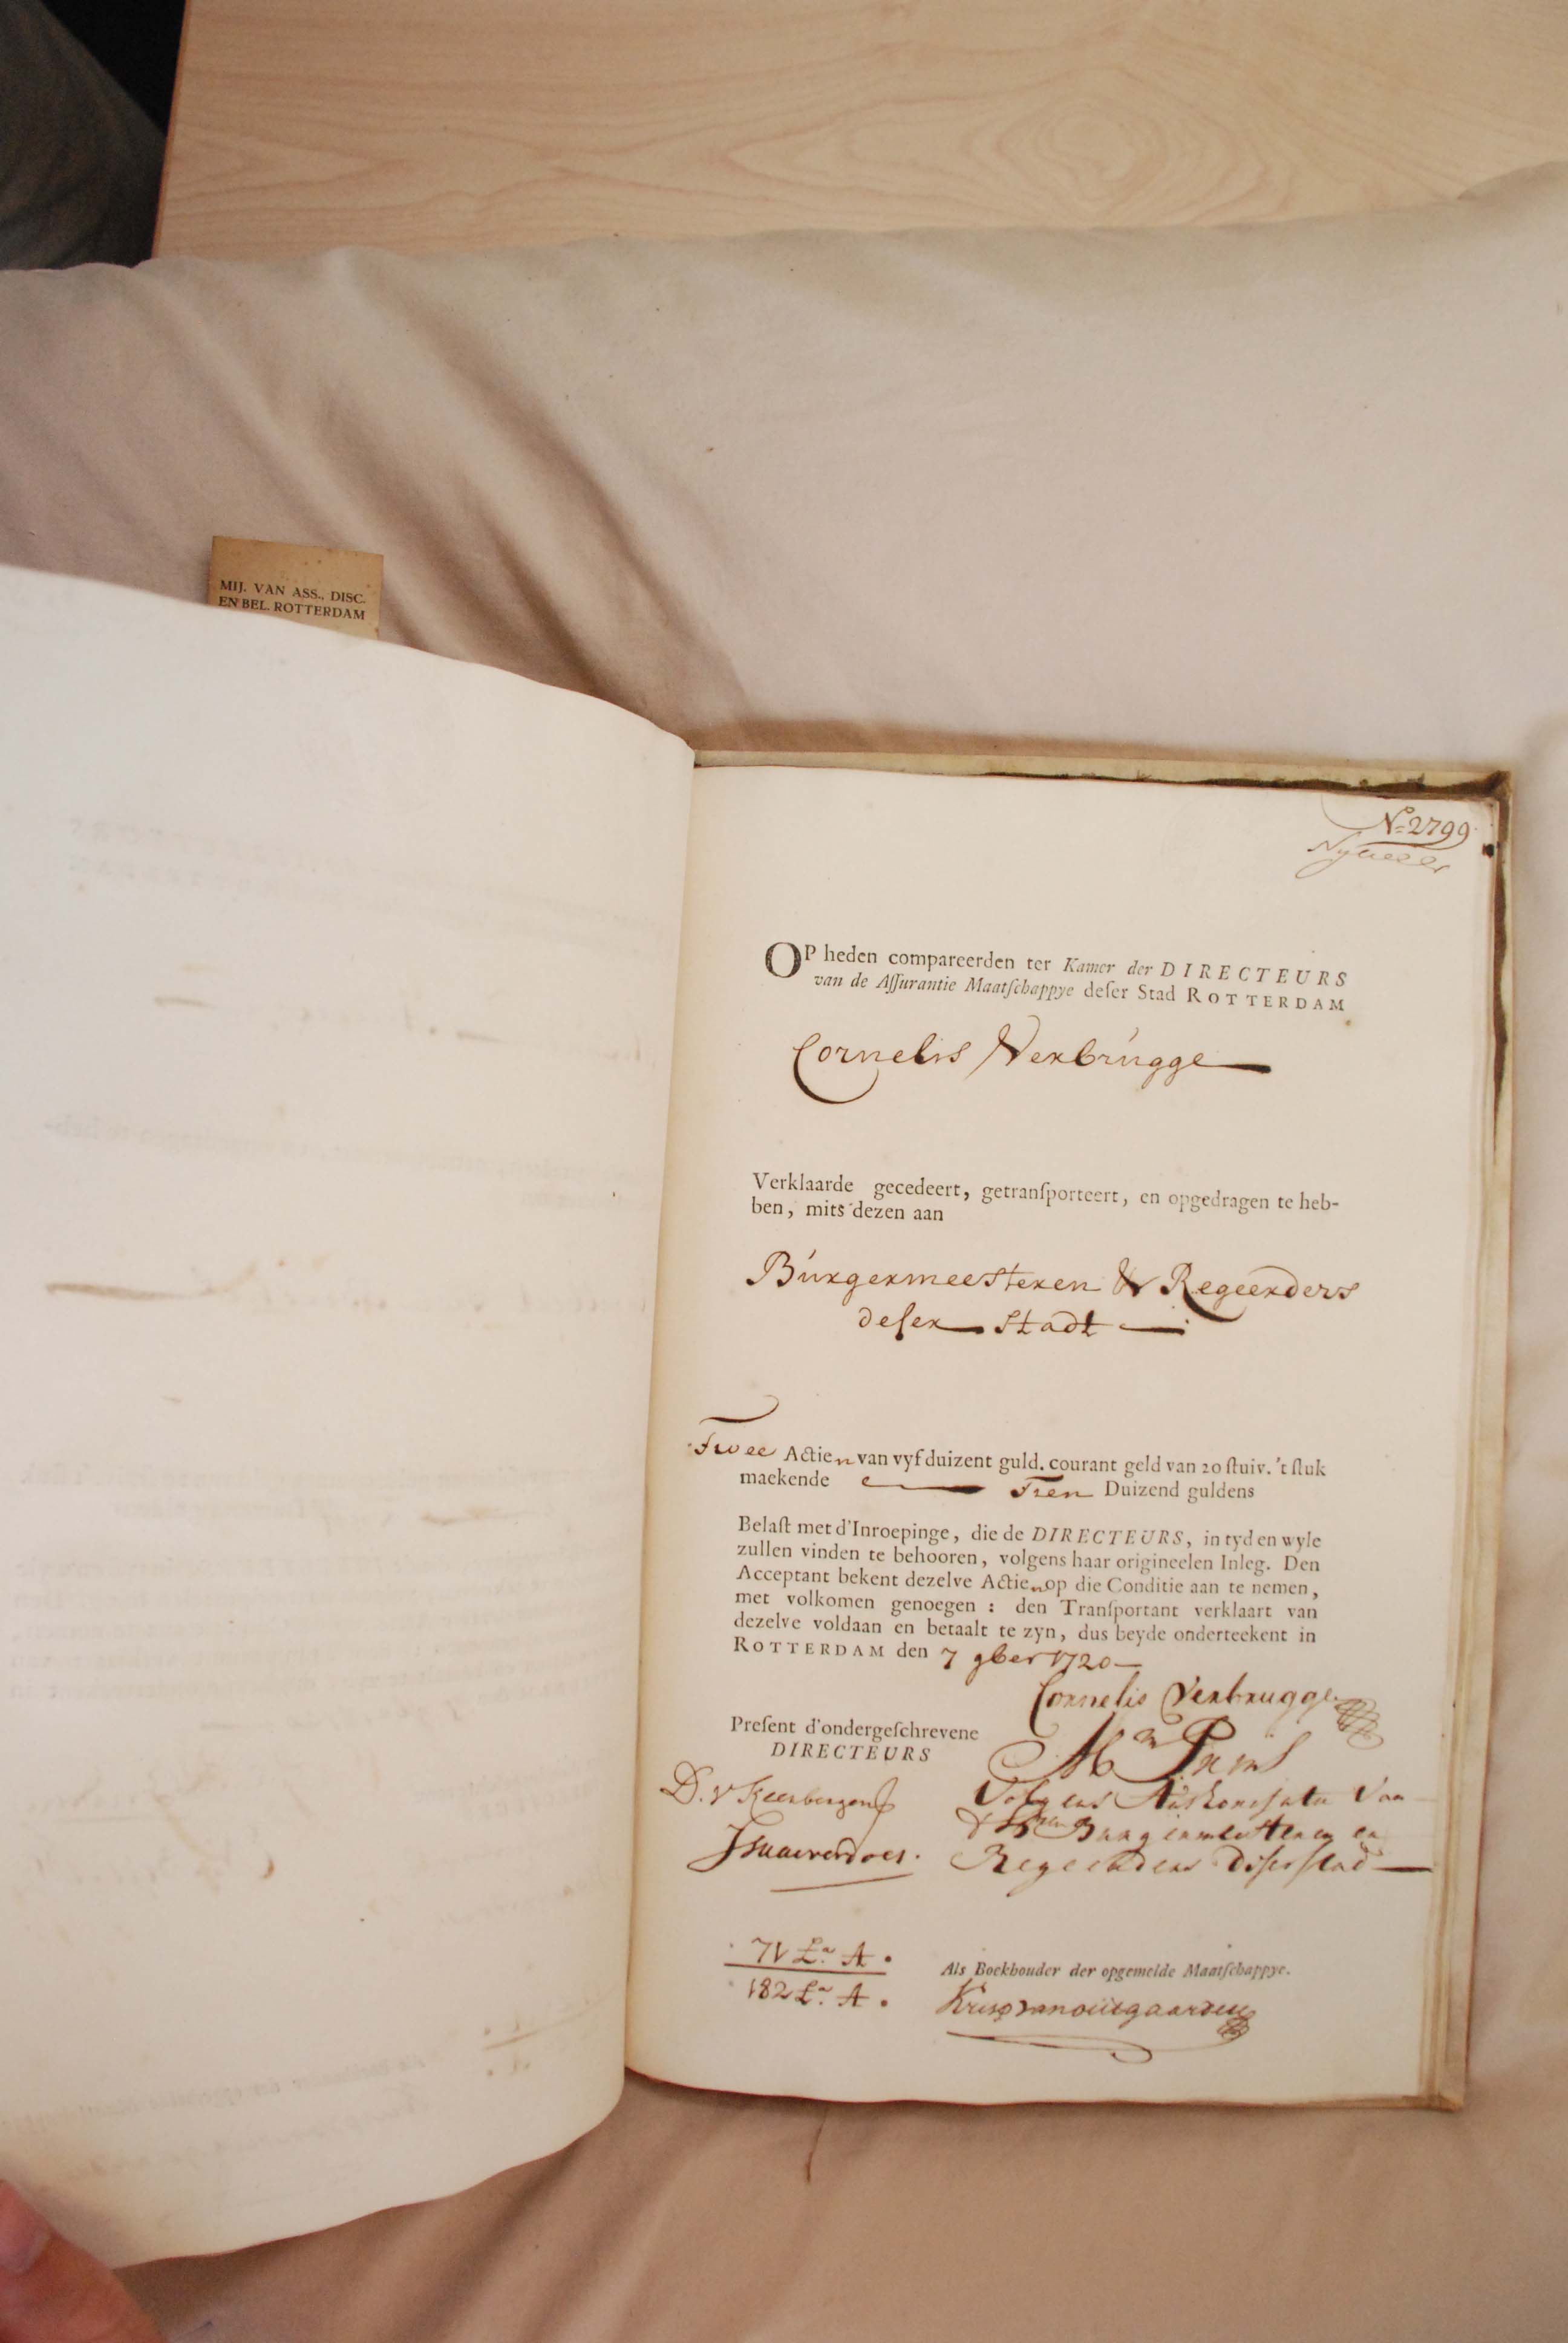 MIJ. VAN ASS., DISC.
EN BEL. ROTTERDAM
No 2799
OP heden compareerden ter Kamer der DIRECTEURS
van de Aſſurantie Maatſchappye deſer Stad ROTTERDAM
Cornelis Verbrugge
Verklaarde gecedeert, getranſporteert, en opgedragen te heb-
ben, mits dezen aan
Burgermeesteren & Regeerders
deſer Stadt
Twee Actien van vyf duizent guld. courant geld van 20 ſtuiv. 't ſtuk
maekende Tien Duizend guldens
Belaſt met d'Inroepinge, die de DIRECTEURS, in tyd en wyle
zullen vinden te behooren, volgens haar origineelen Inleg. Den
Acceptant bekent dezelve Actien op die Conditie aan te nemen,
met volkomen genoegen : den Tranſportant verklaart van
dezelve voldaan en betaalt te zyn, dus beyde onderteekent in
ROTTERDAM den 7 9ber 1720
Cornelis Verbrugge
Preſent d'ondergeſchrevene
DIRECTEURS
D. v Keerbergen
Volgens Van
Burgermeesteren en
Regeerders deser stad
71 La. A.
182 La. A.
Als Boekhouder der opgemelde Maatſchappye.